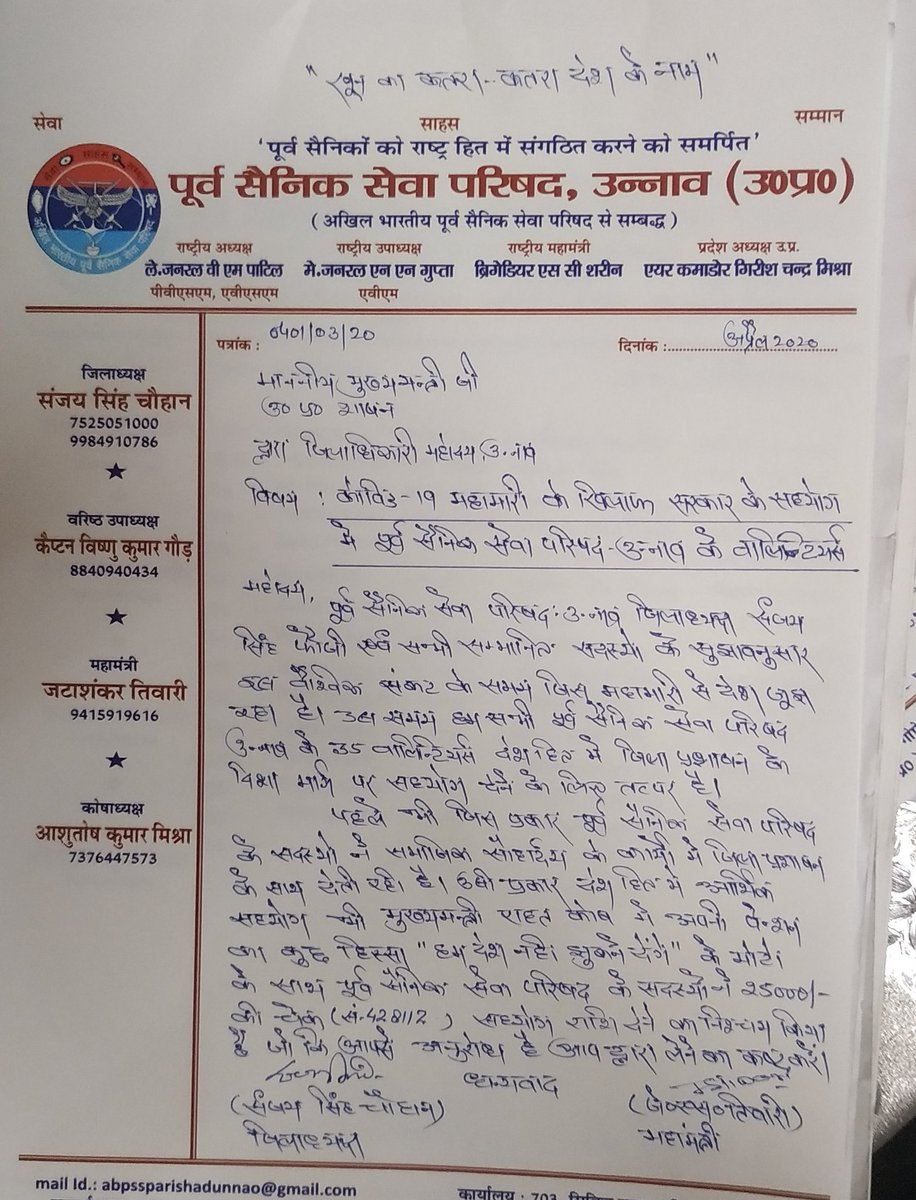 "खून का कतरा-कतरा देश के नाम"
सेवा
साहस
सम्मान
'पूर्व सैनिकों को राष्ट्र हित में संगठित करने को समर्पित'
पूर्व सैनिक सेवा परिषद, उन्नाव (उ०प्र०)
( अखिल भारतीय पूर्व सैनिक सेवा परिषद से सम्बद्ध )
राष्ट्रीय अध्यक्ष
ले.जनरल वी एम पाटिल
पीवीएसएम, एवीएसएम
राष्ट्रीय उपाध्यक्ष
मे.जनरल एन एन गुप्ता
एवीएम
राष्ट्रीय महामंत्री
ब्रिगेडियर एस सी शरीन
प्रदेश अध्यक्ष उ.प्र.
एयर कमाडोर गिरीश चन्द्र मिश्रा
पत्रांक : 0401/03/20
दिनांक :................ अप्रैल 2020
जिलाध्यक्ष
संजय सिंह चौहान
7525051000
9984910786
वरिष्ठ उपाध्यक्ष
कैप्टन विष्णु कुमार गौड़
8840940434
महामंत्री
जटाशंकर तिवारी
9415919616
कोषाध्यक्ष
आशुतोष कुमार मिश्रा
7376447573
माननीय मुख्यमन्त्री जी
उ० प्र० शासन
द्वारा जिलाधिकारी महोदय उन्नाव
विषय : कोविड-19 महामारी के खिलाफ सरकार के सहयोग
मे पूर्व सैनिक सेवा परिषद-उन्नाव के वालिन्टियर्स
महोदय,
पूर्व सैनिक सेवा परिषद-उन्नाव जिलाध्यक्ष संजय
सिंह फौजी एवं सभी सम्मानित सदस्यो के सुझावनुसार
इस वैश्विक संकट के समय जिस महामारी से देश जूझ
रहा है। उस समय हम सभी पूर्व सैनिक सेवा परिषद
उन्नाव के 35 वालिन्टियर्स देश हित मे जिला प्रशासन के
दिशा मार्ग पर सहयोग देने के लिए तत्पर है।
पहले भी जिस प्रकार पूर्व सैनिक सेवा परिषद
के सदस्यो ने समाजिक सौहार्दय के कार्यो मे जिला प्रशासन
के साथ देती रही है। इसी प्रकार देश हित मे आर्थिक
सहयोग भी मुख्यमन्त्री राहत कोष मे अपनी पेन्शन
का कुछ हिस्सा "हम देश नही झुकने देंगे" के मोटो
के साथ पूर्व सैनिक सेवा परिषद के सदस्यो ने 25000/-
की चेक (सं.-428112) सहयोग राशि देने का निश्चय किया
है जो कि आपसे अनुरोध है आप द्वारा लेने का कष्ट करें।
धन्यवाद
(संजय सिंह चौहान)
जिलाध्यक्ष
महामंत्री
mail Id.: abpssparishadunnao@gmail.com
कार्यालय : 703,